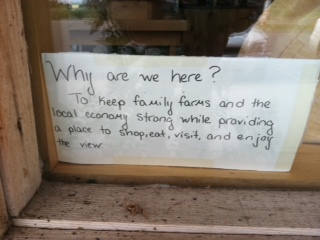 Why are we here?
To keep family farms and the
local economy strong while providing
a place to shop, eat, visit, and enjoy
the view.